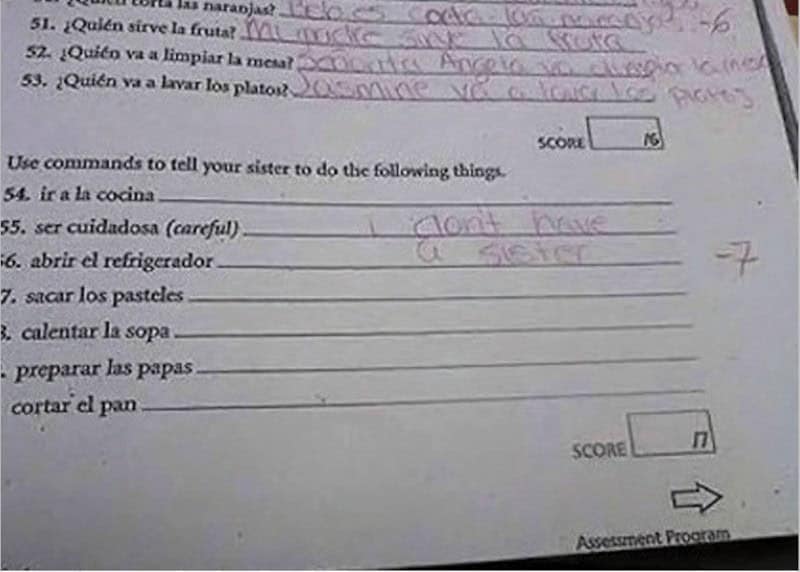 corta las naranjas? corta las naranjas -6
51. ¿Quién sirve la fruta? Mi madre sirve la fruta
52. ¿Quién va a limpiar la mesa? Señorita Angela va a limpiar la mesa
53. ¿Quién va a lavar los platos? Jasmine va a lavar los platos
SCORE /6
Use commands to tell your sister to do the following things.
54. ir a la cocina
55. ser cuidadosa (careful) I don't have
56. abrir el refrigerador a sister -7
7. sacar los pasteles
8. calentar la sopa
. preparar las papas
cortar el pan
SCORE /7
Assessment Program